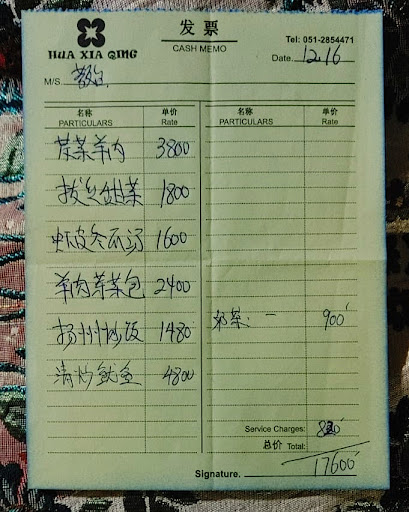 HUA XIA QING
发票
CASH MEMO
Tel: 051-2854471
Date. 12.16
M/S.
名称 单价 名称 单价
PARTICULARS Rate PARTICULARS Rate
菜羊肉 3800
拔丝甜菜 1800
虾皮冬瓜汤 1600
羊肉菜包 2400
奶茶. 一 900
扬州炒饭 1480
清炒鱿鱼 4800
Service Charges: 820
总价 Total:
17600
Signature.